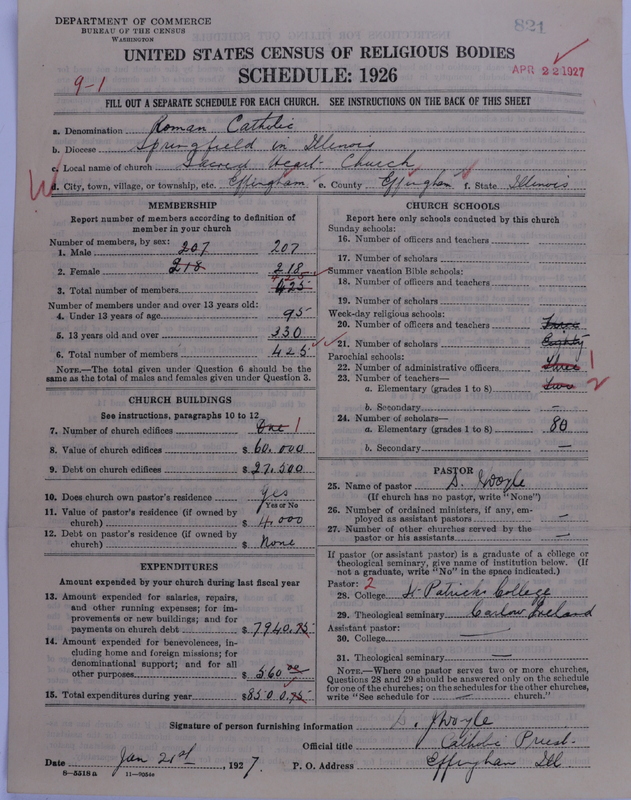 DEPARTMENT OF COMMERCE
BUREAU OF THE CENSUS
WASHINGTON
821
UNITED STATES CENSUS OF RELIGIOUS BODIES
SCHEDULE: 1926
APR 22 1927
9-1
FILL OUT A SEPARATE SCHEDULE FOR EACH CHURCH. SEE INSTRUCTIONS ON THE BACK OF THIS SHEET
a. Denomination Roman Catholic
b. Diocese Springfield in Illinois
c. Local name of church Sacred Heart Church
d. City, town, village, or township, etc. Effingham e. County Effingham f. State Illinois
MEMBERSHIP
Report number of members according to definition of member in your church
Number of members, by sex:
1. Male 207 207
2. Female 218 218
3. Total number of members 425
Number of members under and over 13 years old:
4. Under 13 years of age 95
5. 13 years old and over 330
6. Total number of members 425
NOTE.—The total given under Question 6 should be the same as the total of males and females given under Question 3.
CHURCH BUILDINGS
See instructions, paragraphs 10 to 12
7. Number of church edifices One 1
8. Value of church edifices $ 60,000
9. Debt on church edifices $ 27,500
10. Does church own pastor's residence Yes
Yes or No
11. Value of pastor's residence (if owned by church) $ 4,000
12. Debt on pastor's residence (if owned by church) $ None
EXPENDITURES
Amount expended by your church during last fiscal year
13. Amount expended for salaries, repairs, and other running expenses; for improvements or new buildings; and for payments on church debt $ 7940.75
14. Amount expended for benevolences, including home and foreign missions; for denominational support; and for all other purposes $ 560 00
15. Total expenditures during year $ 8500.75
CHURCH SCHOOLS
Report here only schools conducted by this church
Sunday schools:
16. Number of officers and teachers
17. Number of scholars
Summer vacation Bible schools:
18. Number of officers and teachers
19. Number of scholars
Week-day religious schools:
20. Number of officers and teachers Three
21. Number of scholars Eighty
Parochial schools:
22. Number of administrative officers Three 1
23. Number of teachers—
a. Elementary (grades 1 to 8) Two 2
b. Secondary —
24. Number of scholars—
a. Elementary (grades 1 to 8) 80
b. Secondary —
PASTOR
25. Name of pastor D.
(If church has no pastor, write "None")
26. Number of ordained ministers, if any, employed as assistant pastors —
27. Number of other churches served by the pastor or his assistants —
If pastor (or assistant pastor) is a graduate of a college or theological seminary, give name of institution below. (If not a graduate, write "No" in the space indicated.)
Pastor: 2
28. College St Patricks College
29. Theological seminary Carlow Ireland
Assistant pastor:
30. College —
31. Theological seminary —
NOTE.—Where one pastor serves two or more churches, Questions 28 and 29 should be answered only on the schedule for one of the churches; on the schedules for the other churches, write "See schedule for church."
Signature of person furnishing information D.
Official title Catholic Priest
Date Jan 21st, 1927 P. O. Address Effingham Ill.
8—5518a 11—9954a